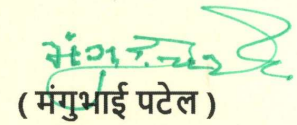 ( मंगुभाई पटेल )